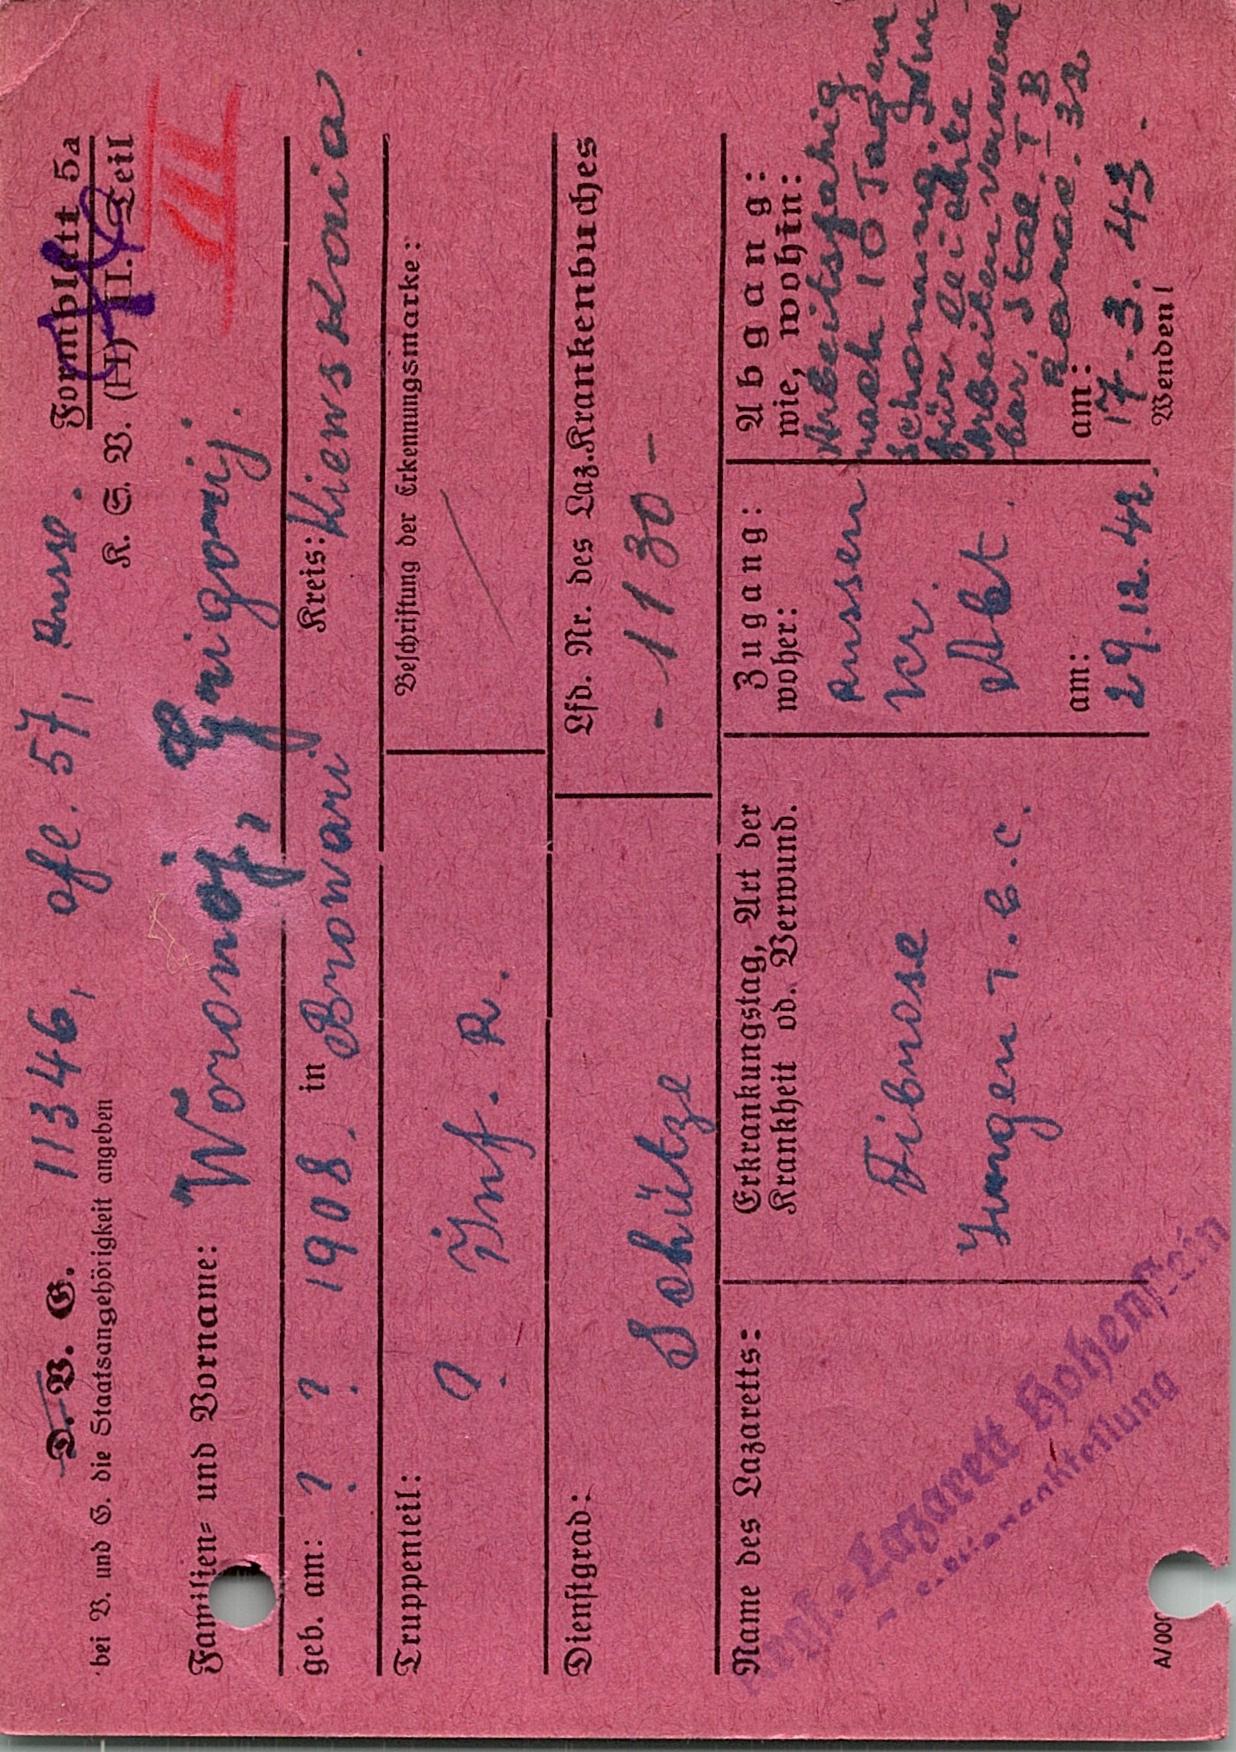 11346, ofl. 57, Russe.
D. V. G.
bei V. und G. die Staatsangehörigkeit angeben
Formblatt 5a
K. S. V. (H) II. Teil
III
Familien- und Vorname: Woronoj, Grigorij.
geb. am: ? ? 1908. in Browari Kreis: Kiewskaia
Truppenteil:
? Inf. R.
Beschriftung der Erkennungsmarke:
Dienstgrad:
Schütze
Lfd. Nr. des Laz.Krankenbuches
- 1130 -
Name des Lazaretts:
Krgf.-Lazarett Hohenstein
Erkrankungstag, Art der
Krankheit od. Verwund.
Fibrose
Lungen T.b.c.
Zugang:
woher:
Russen
Kr.
Abt.
am:
29.12.42.
Abgang:
wie, wohin:
Arbeitsfähig
nach 10 Tagen
Schonung Nur
für leichte
Arbeiten verwend
bar. Stal. I B
am:
17.3.43.
Wenden!
A/00